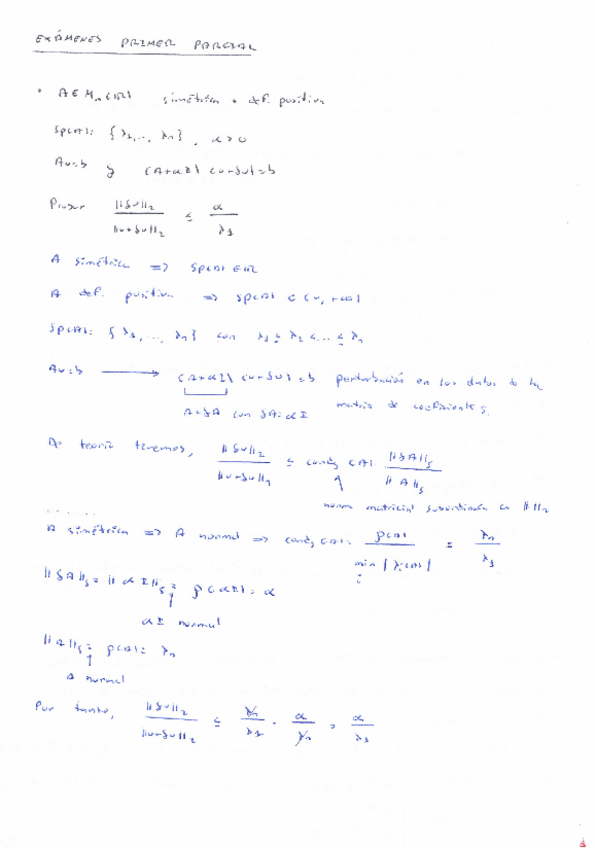 EXÁMENES PRIMER PARCIAL
• A ∈ M_n(ℝ) simétrica + def. positiva
Sp(A) = { λ1, ..., λn } , α > 0
Au = b y (A+αI) (u+δu) = b
Probar ||δu||2 / ||u+δu||2 ≤ α / λ1
A simétrica => Sp(A) ∈ ℝ
A def. positiva => Sp(A) ⊂ (0, +∞)
Sp(A) = { λ1, ..., λn } con λ1 ≤ λ2 ≤ ... ≤ λn
Au = b ⟶ (A+αI) (u+δu) = b perturbación en los datos de la
A+δA con δA = αI matriz de coeficientes.
De teoría tenemos, ||δu||2 / ||u+δu||2 ≤ cond_s (A) · ||δA||s / ||A||s
norma matricial subordinada a || ||2
A simétrica => A normal => cond_s (A) = ρ(A) / min_i |λi(A)| = λn / λ1
||δA||s = ||αI||s = ρ(αI) = α
αI normal
||A||s = ρ(A) = λn
A normal
Por tanto, ||δu||2 / ||u+δu||2 ≤ λn / λ1 · α / λn = α / λ1